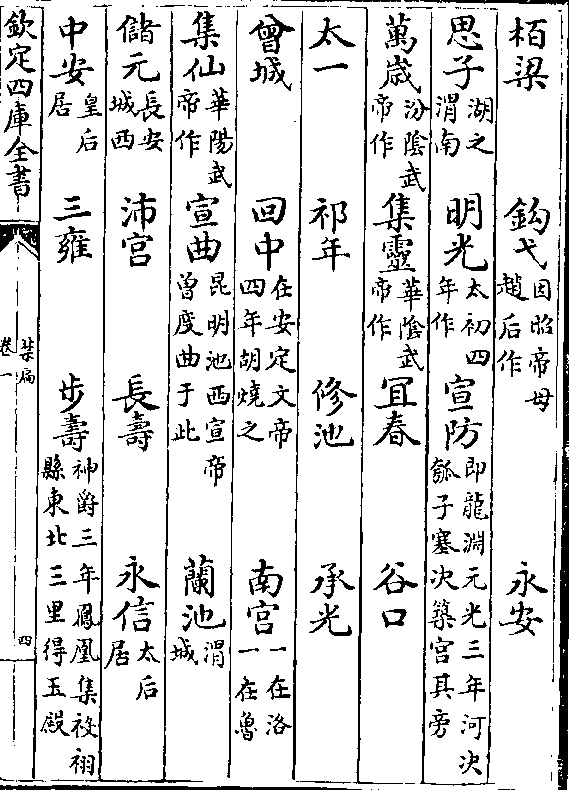 栢梁 鈎弋因昭帝母趙后作 永安
思子湖之渭南 明光太初四年作 宣防即龍淵元光三年河決瓠子塞決築宮其旁
萬歲汾陰武帝作 集靈華陰武帝作 宜春 谷口
太一 祁年 修池 承光
曾城 回中在安定文帝四年胡燒之 南宮一在洛一在魯
集仙華陽武帝作 宣曲昆明池西宣帝曾度曲于此 蘭池渭城
儲元長安城西 沛宮 長壽 永信太后居
中安皇后居 三雍 步壽神爵三年鳳凰集祋祤縣東北三里得玉殿
欽定四庫全書
禁扁
卷一
四